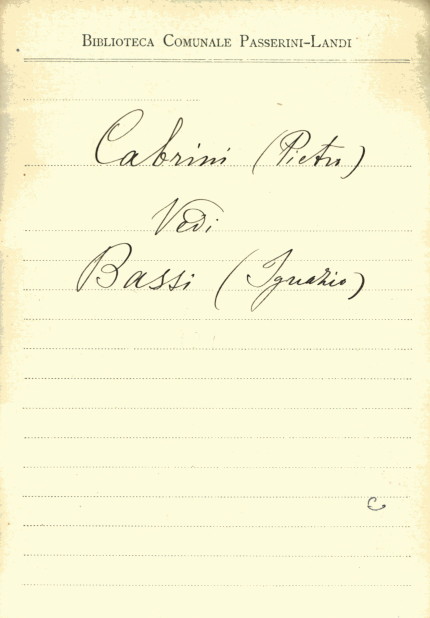 BIBLIOTECA COMUNALE PASSERINI-LANDI
Cabrini (Pietro)
Vedi
Bassi (Ignazio)
C